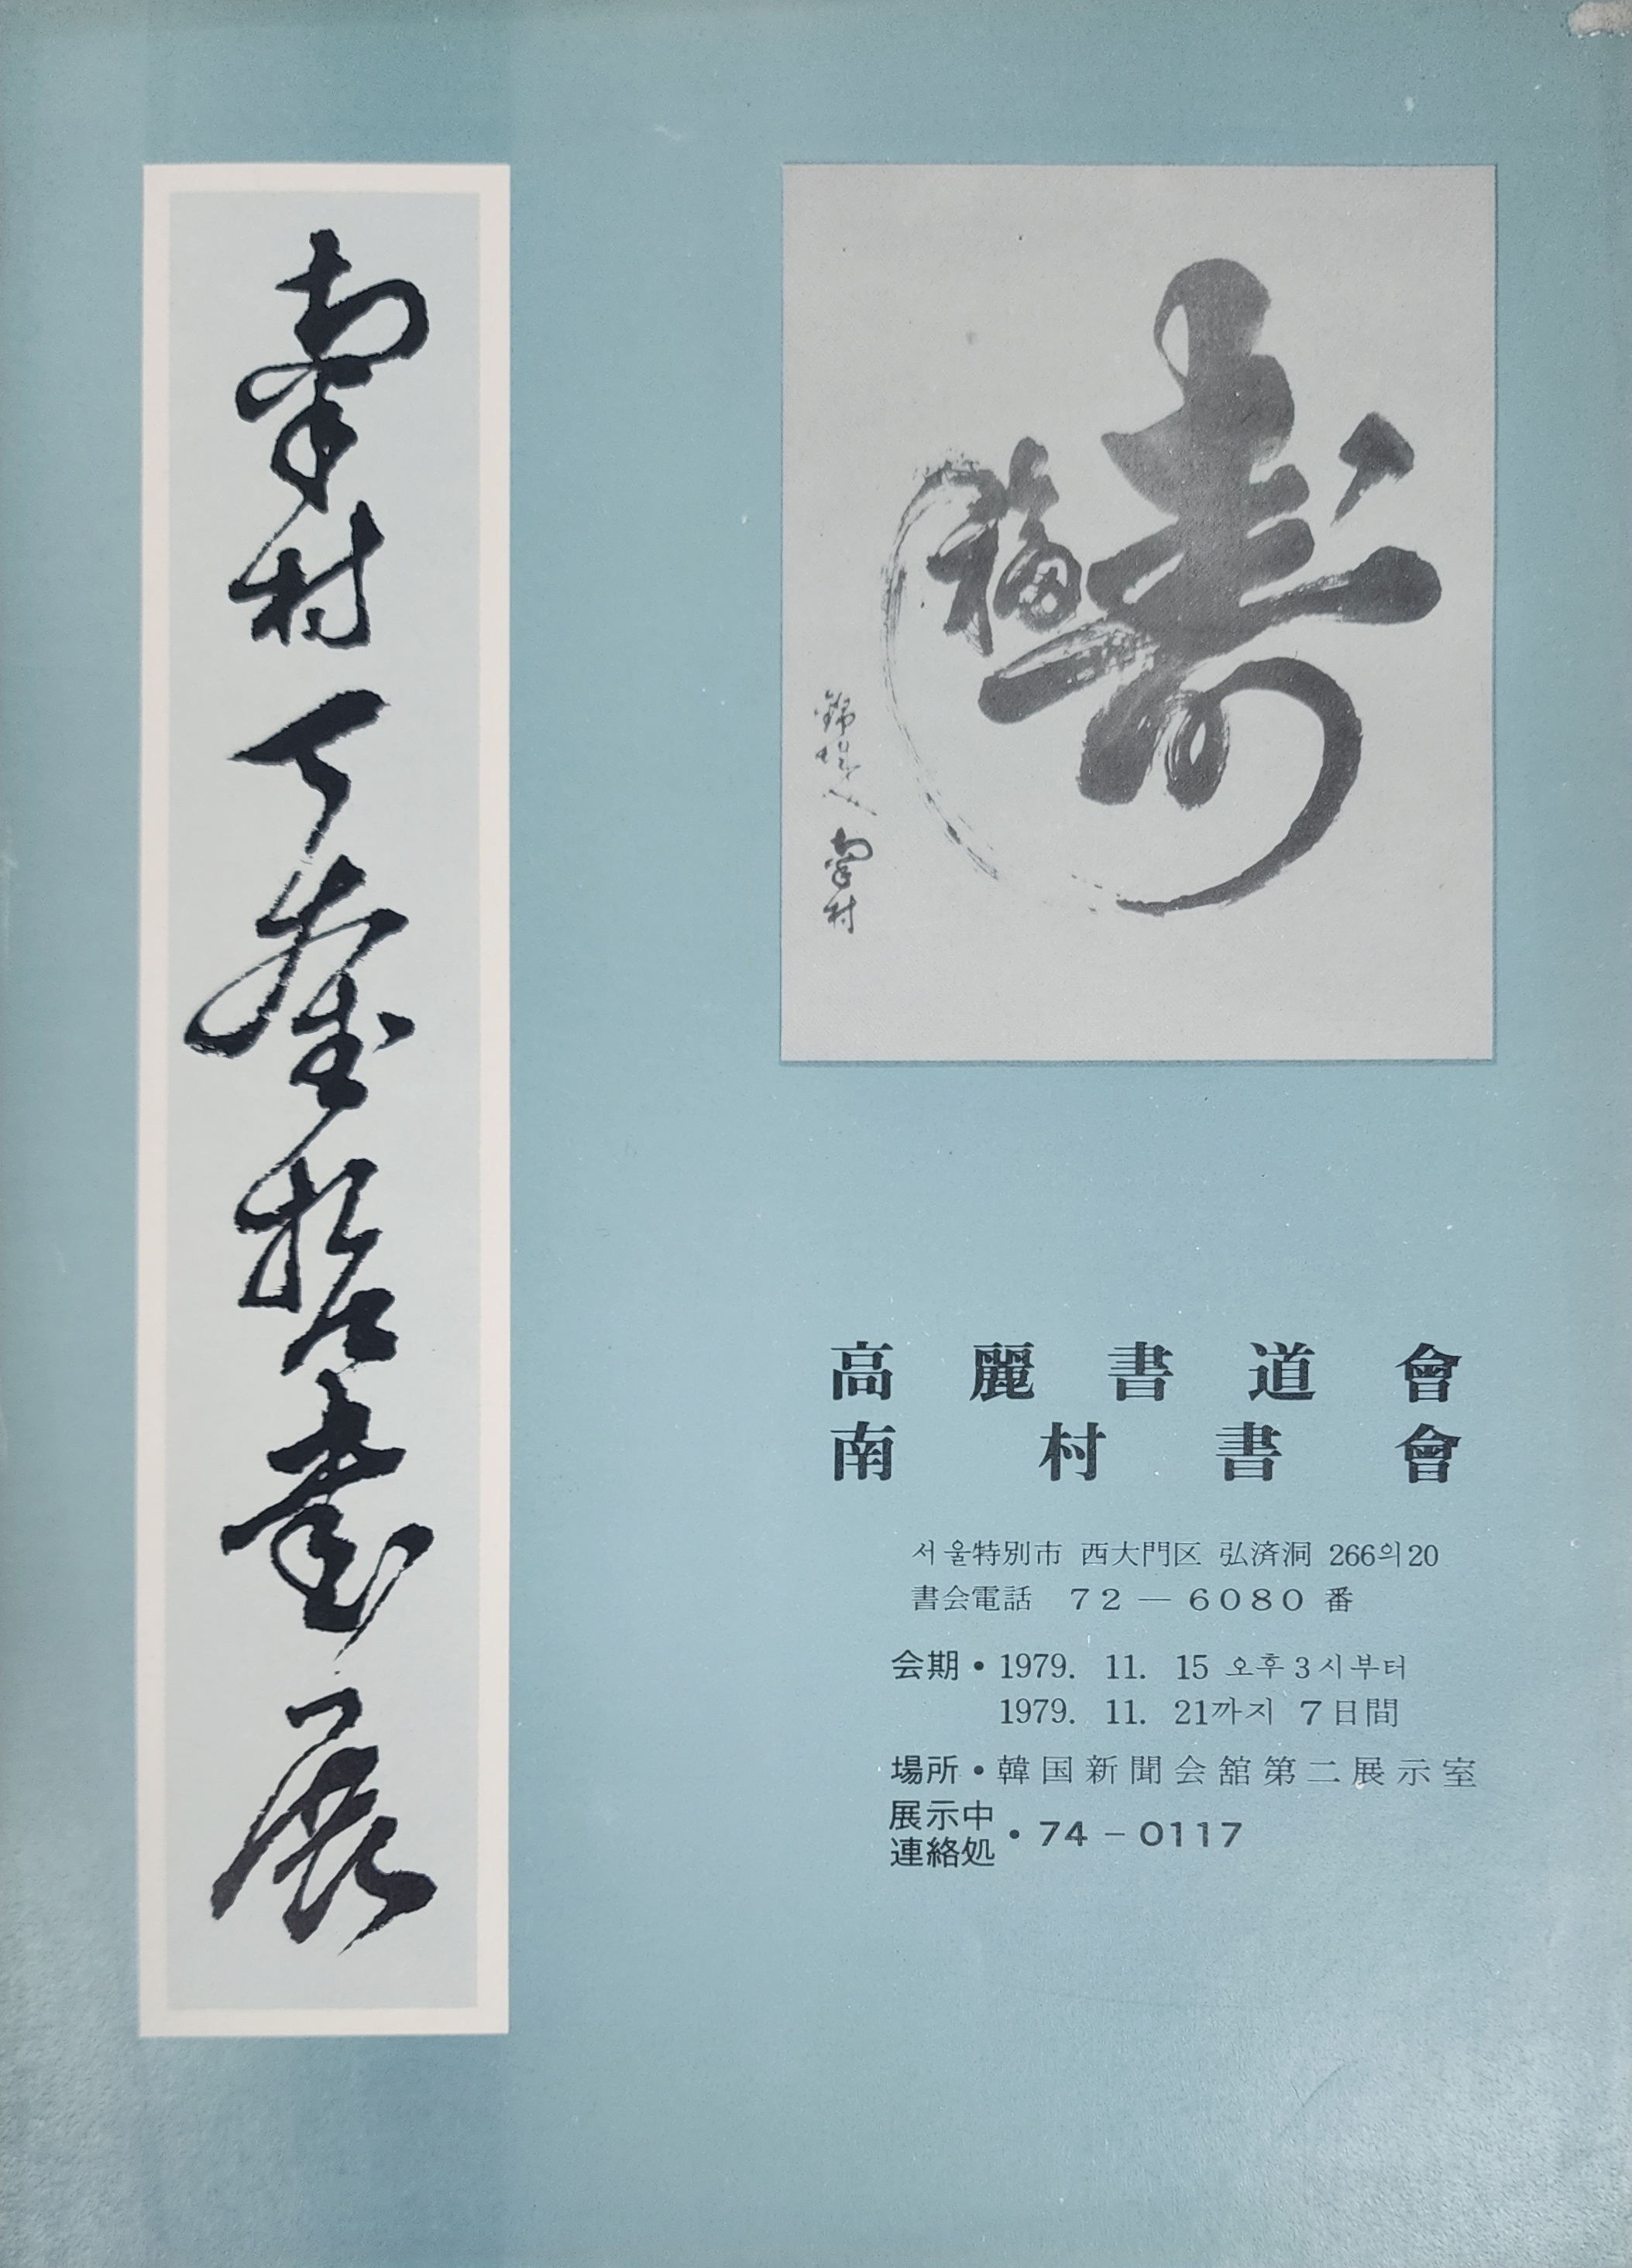 南村丁奎哲書展
寿
福
錦城人 南村
高麗書道會
南村書會
서울特別市 西大門区 弘済洞 266의20
書会電話 72 — 6080 番
会期 • 1979. 11. 15 오후 3시부터
1979. 11. 21까지 7日間
場所 • 韓国新聞会舘第二展示室
展示中
連絡処 • 74 – 0117